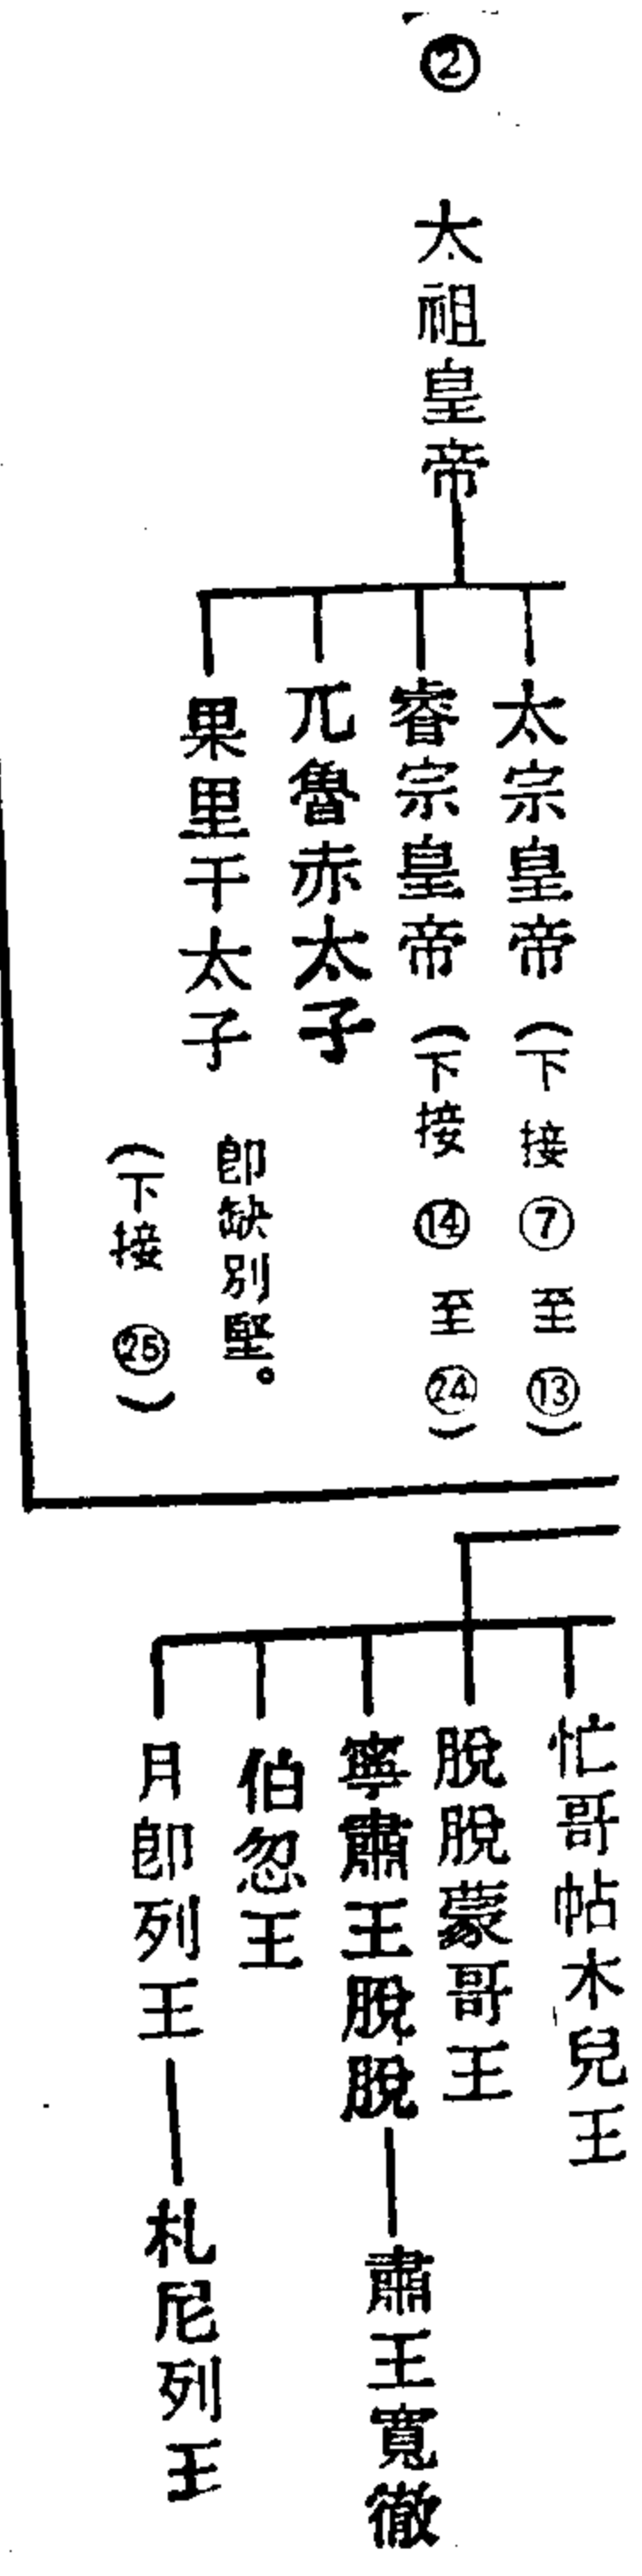 ②
太祖皇帝
太宗皇帝（下接⑦至⑬）
睿宗皇帝（下接⑭至㉔）
兀魯赤太子
果里干太子
即缺別堅。
（下接㉕）
忙哥帖木兒王
脫脫蒙哥王
寧肅王脫脫
肅王寬徹
伯忽王
月即列王
札尼列王